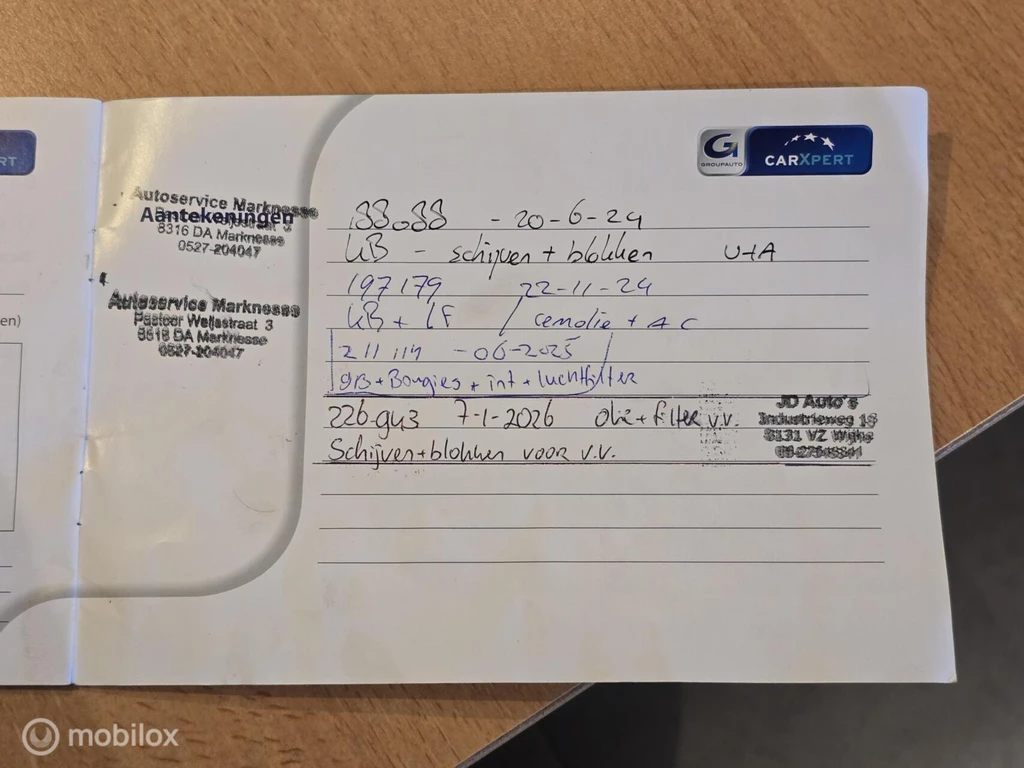 RT
en)
Autoservice Marknesse
Aantekeningen
8316 DA Marknesse
0527-204047
Autoservice Marknesse
Pastoor Weijsstraat 3
8316 DA Marknesse
0527-204047
G
GROUPAUTO
CARXPERT
188.088 - 20-6-24
KB - schijven + blokken V+A
197179 22-11-24
KB + LF / cemolie + AC
211 114 - 06-2025
gB + Bougies + int + luchtfilter
226.943 7-1-2026 olie + filter v.v.
Schijven + blokken voor v.v.
JD Auto's
Industrieweg 18
8131 VZ Wijhe
mobilox